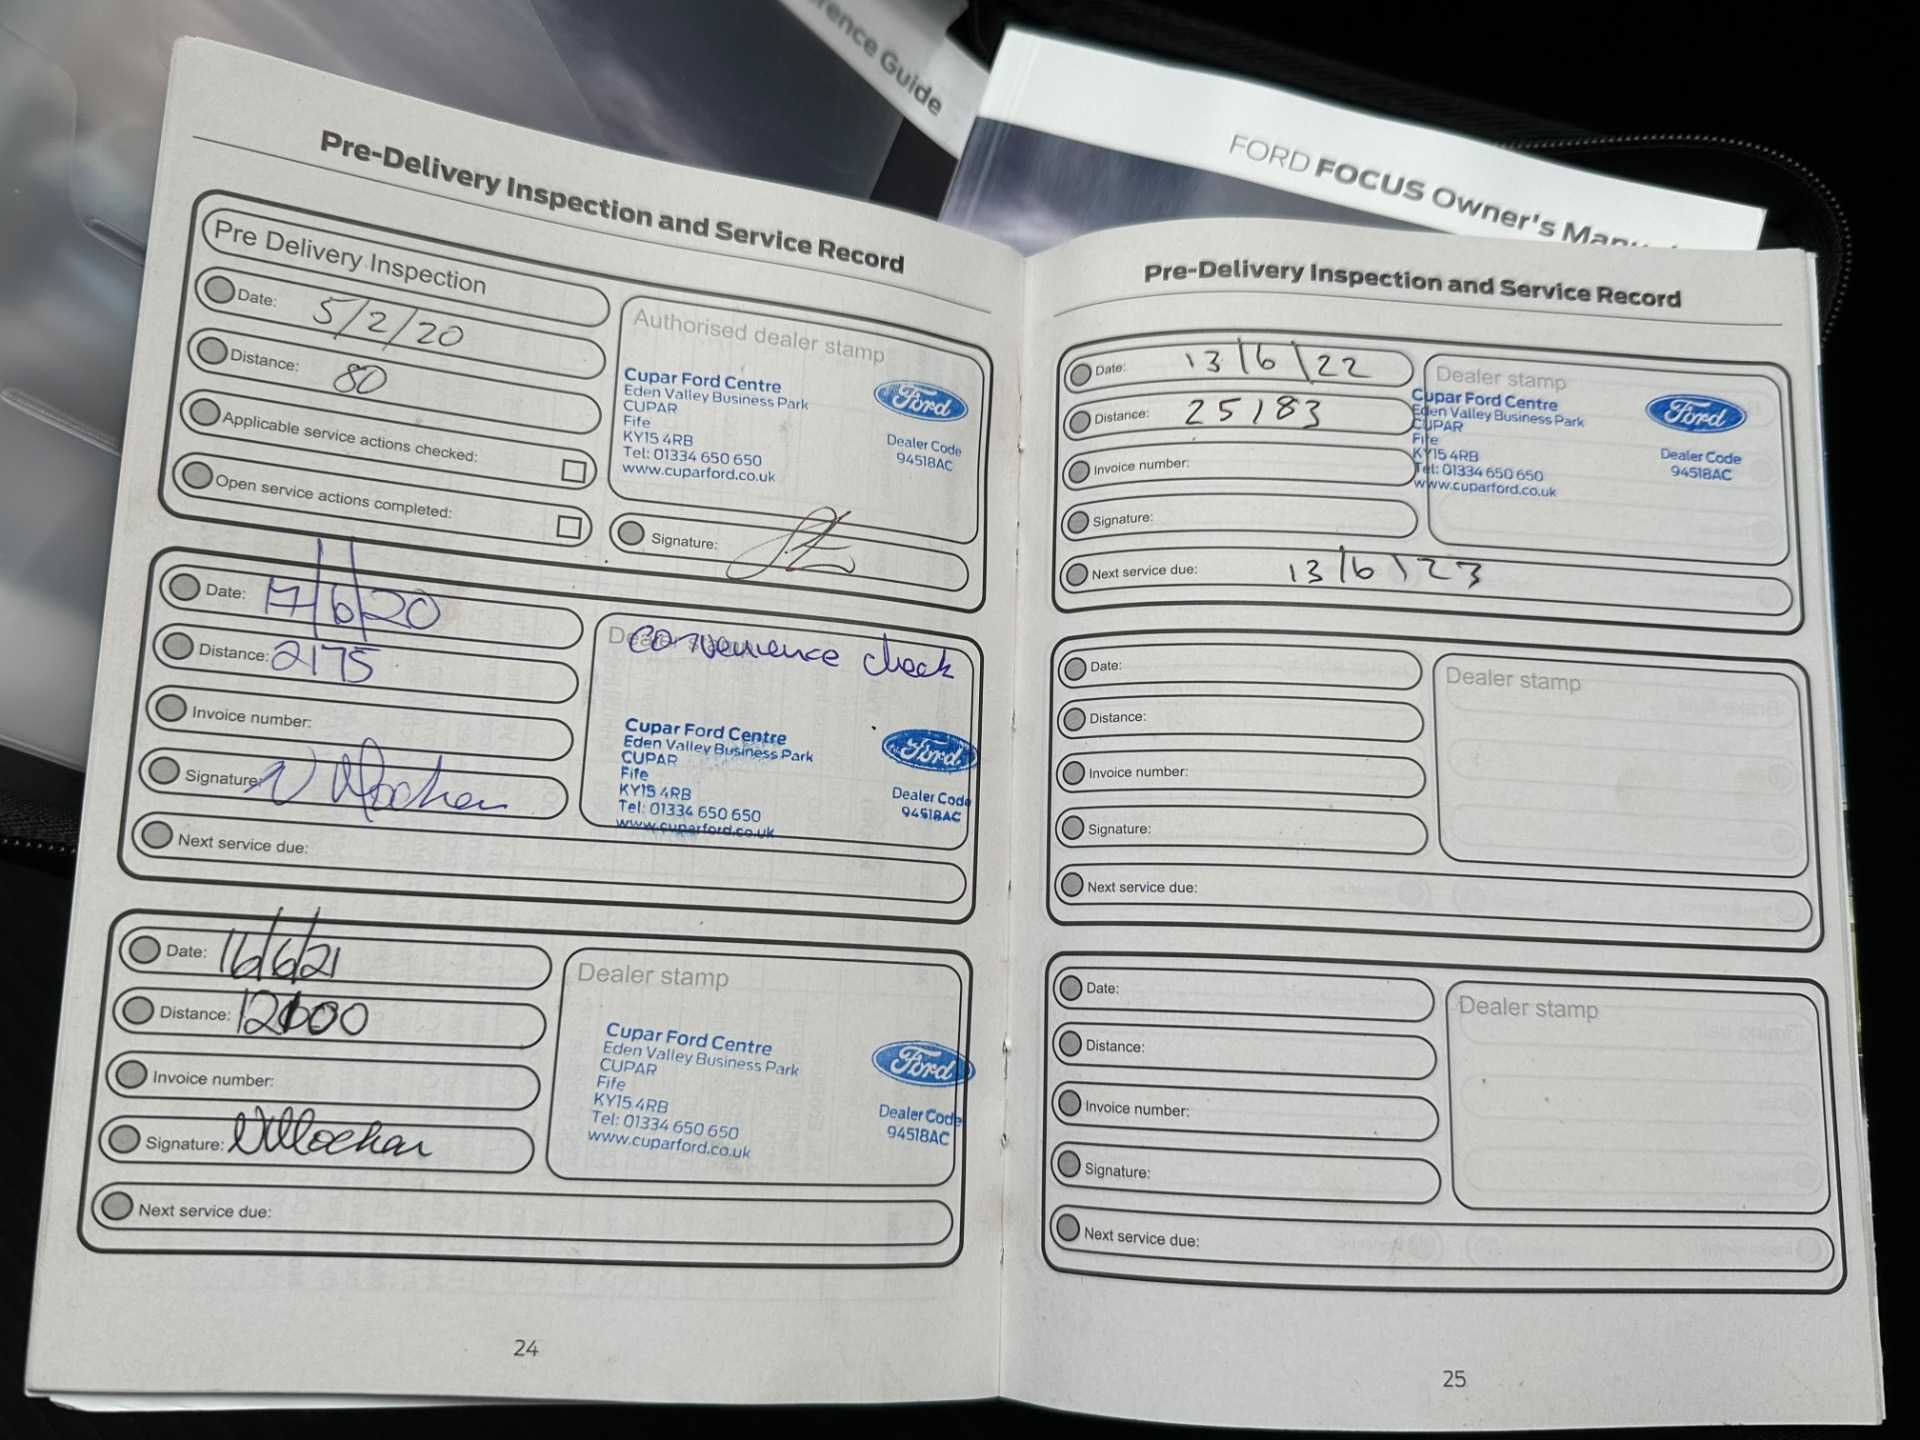 rence Guide
FORD FOCUS Owner's Manual
Pre-Delivery Inspection and Service Record
Pre Delivery Inspection
Date: 5/2/20
Distance: 80
Applicable service actions checked:
Open service actions completed:
Authorised dealer stamp
Cupar Ford Centre
Eden Valley Business Park
CUPAR
Fife
KY15 4RB
Tel: 01334 650 650
www.cuparford.co.uk
Ford
Dealer Code
94518AC
Signature:
Date: 17/6/20
Distance: 2175
Invoice number:
Signature:
Next service due:
Dealer stamp
convenience check
Cupar Ford Centre
Eden Valley Business Park
CUPAR
Fife
KY15 4RB
Tel: 01334 650 650
www.cuparford.co.uk
Ford
Dealer Code
94518AC
Date: 16/6/21
Distance:
Invoice number:
Signature:
Next service due:
Dealer stamp
Cupar Ford Centre
Eden Valley Business Park
CUPAR
Fife
KY15 4RB
Tel: 01334 650 650
www.cuparford.co.uk
Ford
Dealer Code
94518AC
24
Pre-Delivery Inspection and Service Record
Date: 13/6/22
Distance: 25183
Invoice number:
Signature:
Next service due: 13/6/23
Dealer stamp
Cupar Ford Centre
Eden Valley Business Park
CUPAR
Fife
KY15 4RB
Tel: 01334 650 650
www.cuparford.co.uk
Ford
Dealer Code
94518AC
Date:
Distance:
Invoice number:
Signature:
Next service due:
Dealer stamp
Date:
Distance:
Invoice number:
Signature:
Next service due:
Dealer stamp
25